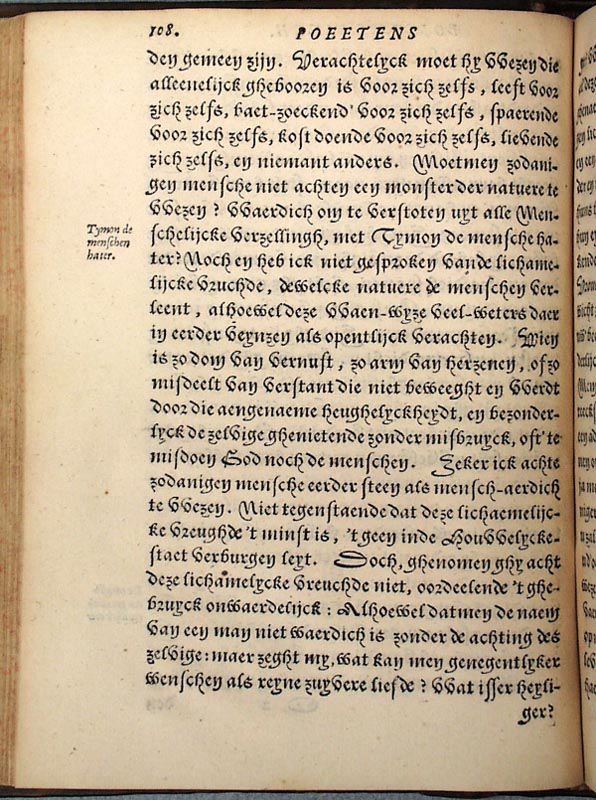 108. POEETENS
den gemeen zijn. Verachtelyck moet hy VVezen die
alleenelijck ghebooren is voor zich zelfs, leeft voor
zich zelfs, baet-zoeckend' voor zich zelfs, spaerende
voor zich zelfs, kost doende voor zich zelfs, lievende
zich zelfs, en niemant anders. Moetmen zodani-
gen mensche niet achten een monster der natuere te
VVezen? VVaerdich om te verstoten uyt alle Men-
schelijcke verzellingh, met Tymon de mensche ha-
ter? Noch en heb ick niet gesproken vande lichame-
lijcke vruchde, dewelcke natuere de menschen ver-
leent, alhoewel deze VVaen-wyze veel-weters daer
in eerder veynzen als opentlijck verachten. Wien
is zo dom van vernuft, zo arm van herzenen, of zo
misdeelt van verstant die niet beweeght en VVerdt
door die aengenaeme heughelyckheydt, en bezonder-
lyck de zelvige ghenietende zonder misbruyck, oft te
misdoen God noch de menschen. Zeker ick achte
zodanigen mensche eerder steen als mensch-aerdich
te VVezen. Niet tegenstaende dat deze lichaemelijc-
ke vreughde 't minst is, 't geen inde HouVVelycke-
staet verburgen leyt. Doch, ghenomen ghy acht
deze lichamelycke vreuchde niet, oordeelende 't ghe-
bruyck onwaerdelijck: Alhoewel datmen de naem
van een man niet waerdich is zonder de achting des
zelvige: maer zeght my, wat kan men genegentlyker
wenschen als reyne zuyvere liefde? VVat isser heyli-
ger?
Tymon de
menschen
hater.